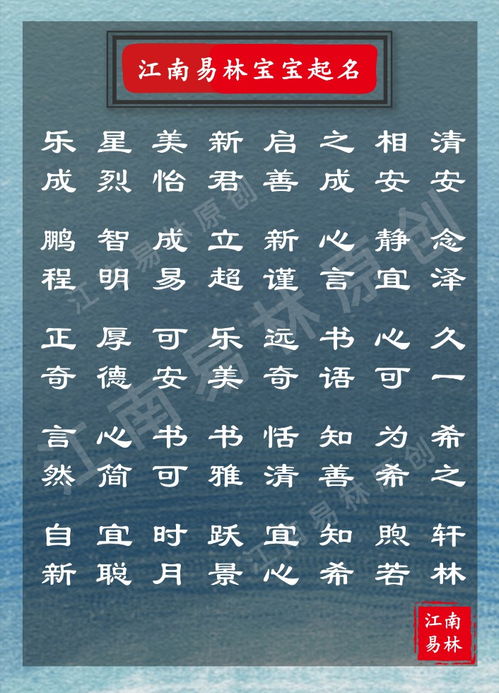 江南易林宝宝起名
乐 星 美 新 启 之 相 清
成 烈 怡 君 善 成 安 安
鹏 智 成 立 新 心 静 念
程 明 易 超 谨 言 宜 泽
正 厚 可 乐 远 书 心 久
奇 德 安 美 奇 语 可 一
言 心 书 书 恬 知 为 希
然 简 可 雅 清 善 希 之
自 宜 时 跃 宜 知 煦 轩
新 聪 月 景 心 希 若 林
江南
易林
江南易林原创
江南易林原创
江南易林原创